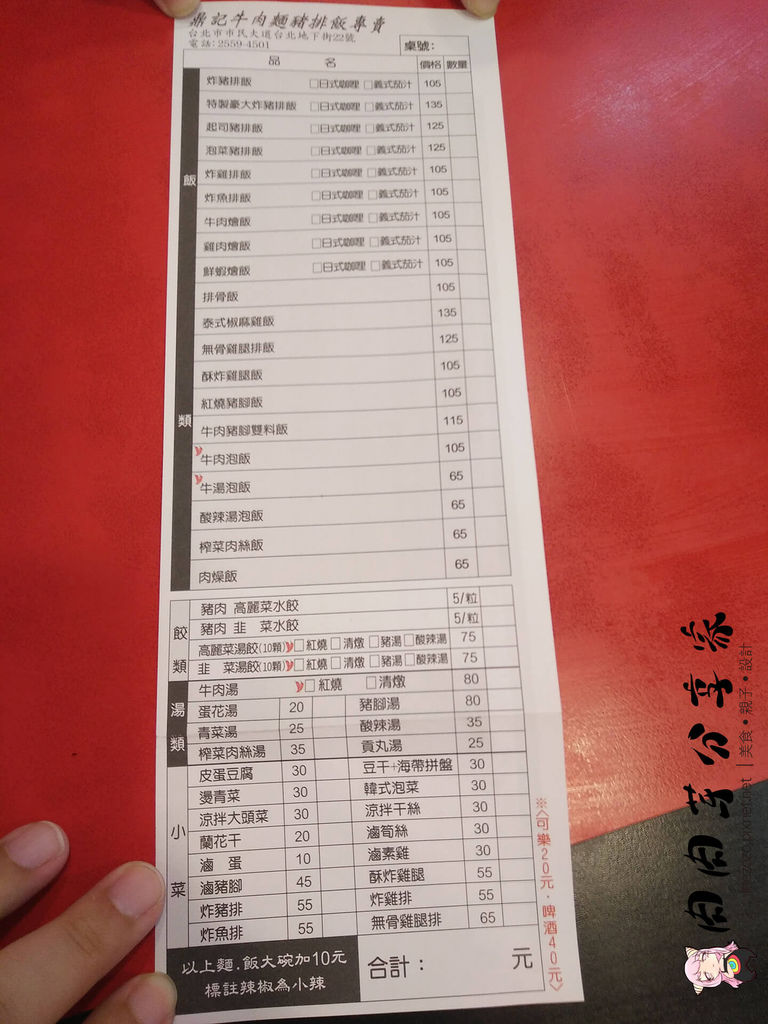 鼎記牛肉麵豬排飯專賣
台北市市民大道台北地下街22號
電話:2559-4501
桌號:
品 名 價格 數量
飯類
炸豬排飯 □日式咖哩 □義式茄汁 105
特製豪大炸豬排飯 □日式咖哩 □義式茄汁 135
起司豬排飯 □日式咖哩 □義式茄汁 125
泡菜豬排飯 □日式咖哩 □義式茄汁 125
炸雞排飯 □日式咖哩 □義式茄汁 105
炸魚排飯 □日式咖哩 □義式茄汁 105
牛肉燴飯 □日式咖哩 □義式茄汁 105
雞肉燴飯 □日式咖哩 □義式茄汁 105
鮮蝦燴飯 □日式咖哩 □義式茄汁 105
排骨飯 105
泰式椒麻雞飯 135
無骨雞腿排飯 125
酥炸雞腿飯 105
紅燒豬腳飯 105
牛肉豬腳雙料飯 115
牛肉泡飯 105
牛湯泡飯 65
酸辣湯泡飯 65
榨菜肉絲飯 65
肉燥飯 65
餃類
豬肉 高麗菜水餃 5/粒
豬肉 韭 菜水餃 5/粒
高麗菜湯餃(10顆) □紅燒 □清燉 □豬湯 □酸辣湯 75
韭 菜湯餃(10顆) □紅燒 □清燉 □豬湯 □酸辣湯 75
湯類
牛肉湯 □紅燒 □清燉 80
蛋花湯 20 豬腳湯 80
青菜湯 25 酸辣湯 35
榨菜肉絲湯 35 貢丸湯 25
小菜
皮蛋豆腐 30 豆干+海帶拼盤 30
燙青菜 30 韓式泡菜 30
涼拌大頭菜 30 涼拌干絲 30
蘭花干 20 滷筍絲 30
滷 蛋 10 滷素雞 30
滷豬腳 45 酥炸雞腿 55
炸豬排 55 炸雞排 55
炸魚排 55 無骨雞腿排 65
以上麵.飯大碗加10元
標註辣椒為小辣
合計: 元
※<可樂20元‧啤酒40元>
肉肉芽分享家
美食●親子●設計